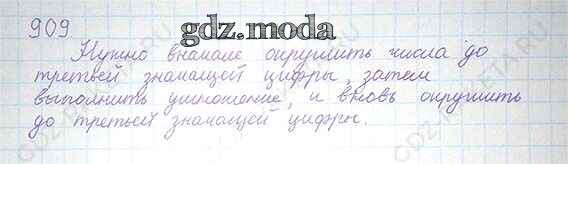 909
gdz.moda
Нужно вначале округлить числа до
третьей значащей цифры, затем
выполнить умножение, и вновь округлить
до третьей значащей цифры.